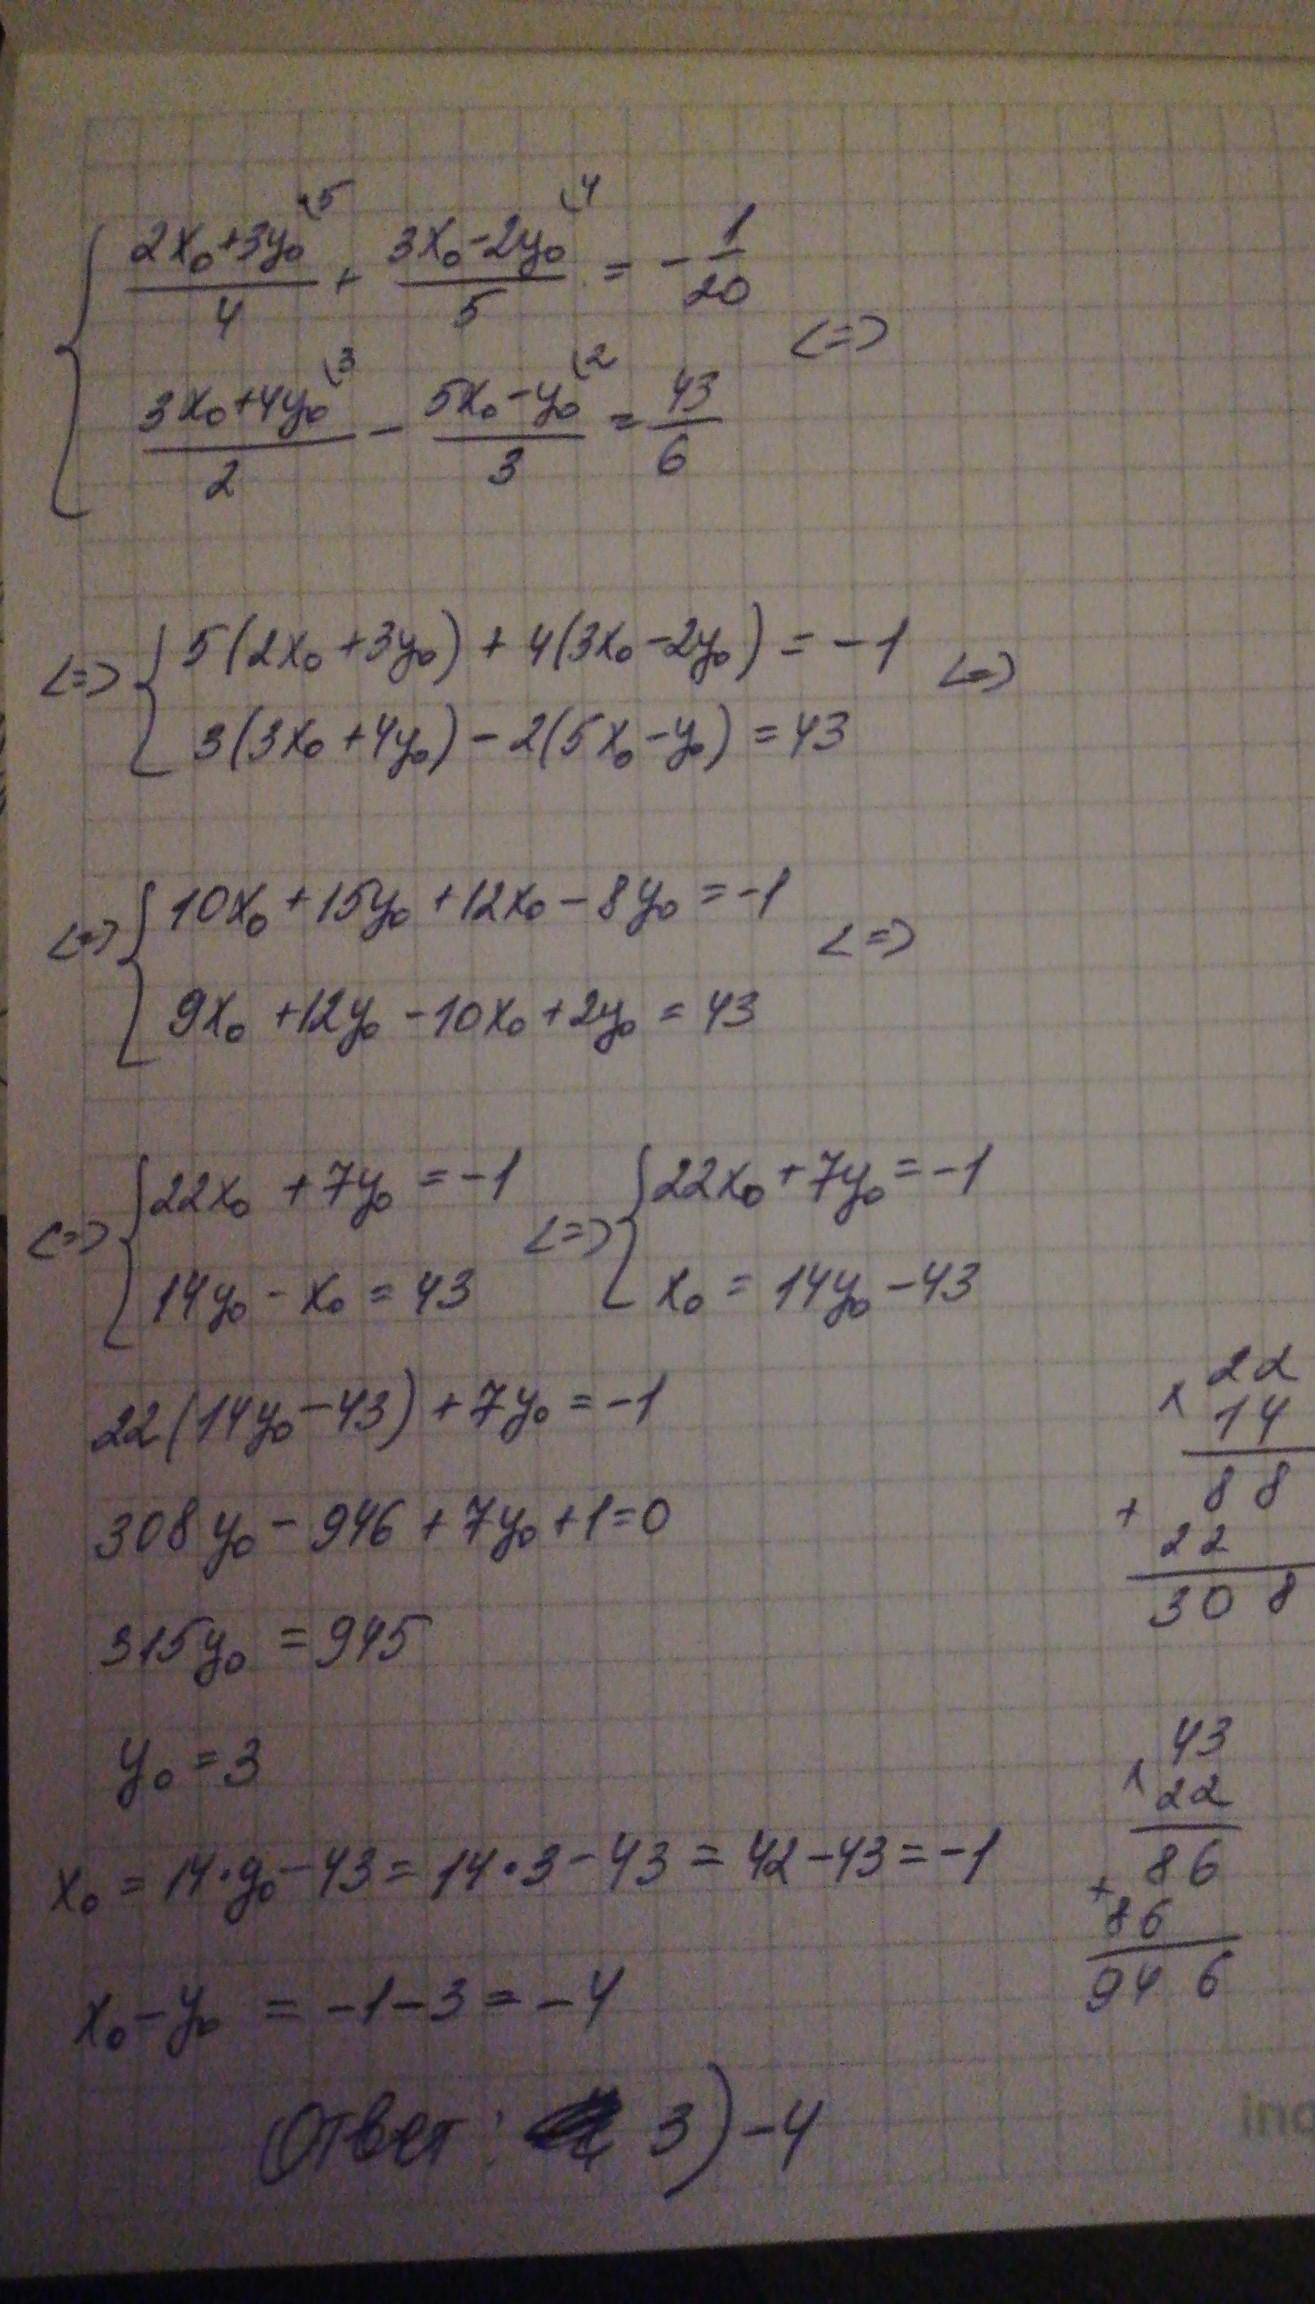 { (2x₀+3y₀)/4 ⁽⁵ + (3x₀-2y₀)/5 ⁽⁴ = -1/20
(3x₀+4y₀)/2 ⁽³ - (5x₀-y₀)/3 ⁽² = 43/6 <=>
<=> { 5(2x₀+3y₀) + 4(3x₀-2y₀) = -1 <=>
3(3x₀+4y₀) - 2(5x₀-y₀) = 43
<=> { 10x₀+15y₀+12x₀-8y₀=-1 <=>
9x₀+12y₀-10x₀+2y₀=43
<=> { 22x₀+7y₀=-1 <=> { 22x₀+7y₀=-1
14y₀-x₀=43 x₀=14y₀-43
22(14y₀-43)+7y₀=-1
308y₀-946+7y₀+1=0
315y₀=945
y₀=3
x₀=14·y₀-43=14·3-43=42-43=-1
x₀-y₀=-1-3=-4
Ответ: 3) -4
x 22
14
+ 88
22
308
x 43
22
+ 86
86
946